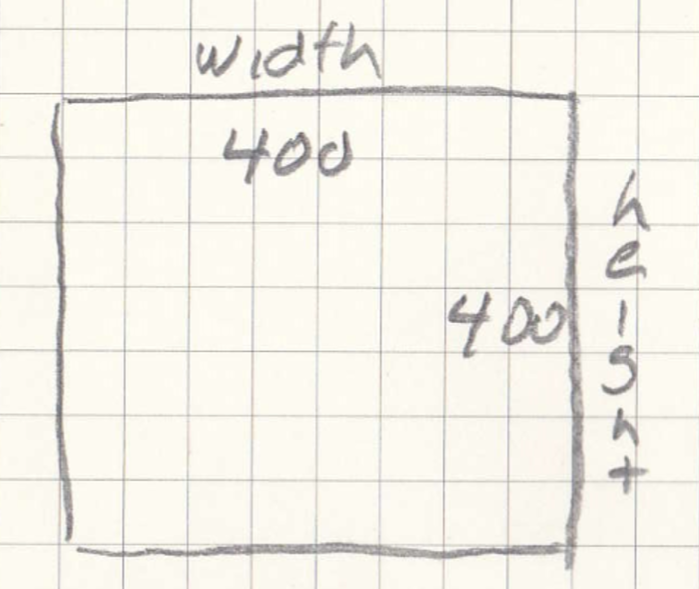 width
400
400
height